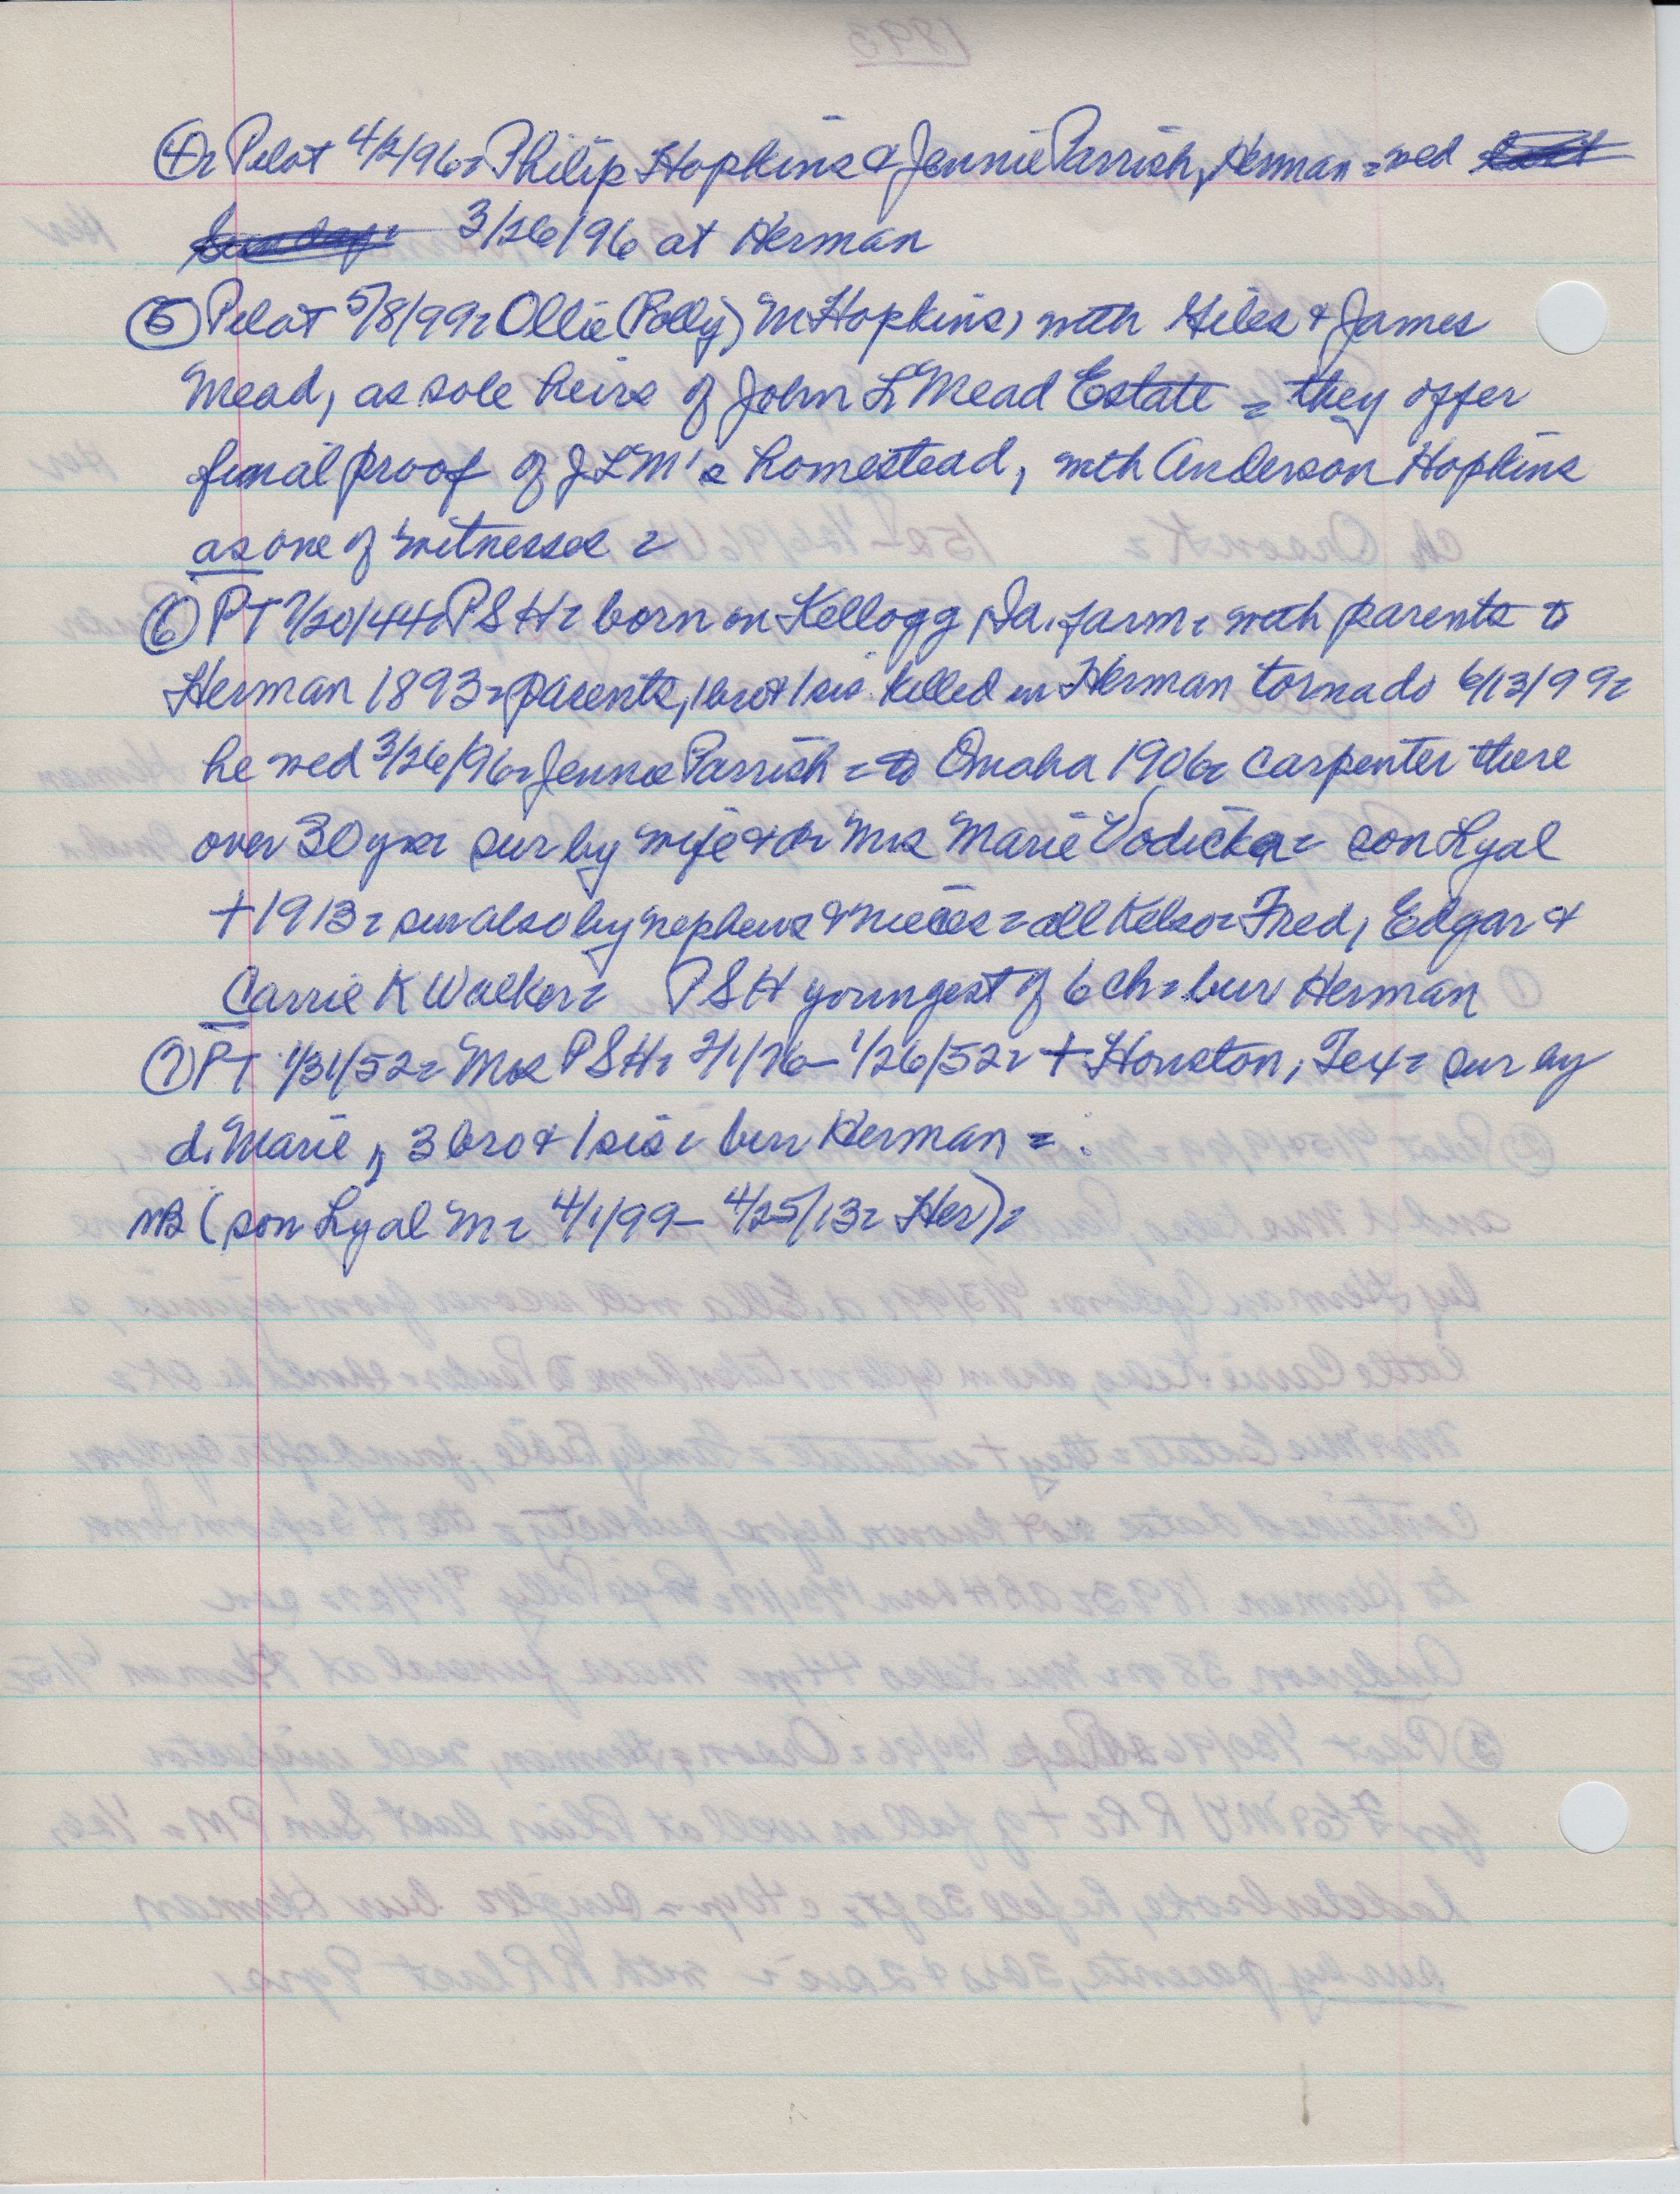 ④ Pilot 4/2/96 = Philip Hopkins & Jennie Parrish, Herman = wed
3/26/96 at Herman
⑤ Pilot 5/8/99 = Ollie (Polly) M Hopkins, with Giles & James
Mead, as sole heirs of John L Mead Estate = they offer
final proof of JLM's homestead, with Anderson Hopkins
as one of witnesses =
⑥ PT 7/20/44 = PSH = born on Kellogg, Ia. farm = with parents to
Herman 1893 = parents, 1 bro & 1 sis killed in Herman tornado 6/13/99 =
he wed 3/26/96 = Jennie Parrish = to Omaha 1906 = carpenter there
over 30 yrs = sur by wife & dr Mrs Marie Vodicka = son Lyal
+ 1913 = sur also by nephews & nieces = all Kelso = Fred, Edgar &
Carrie K Walker = PSH youngest of 6 ch = bur Herman
⑦ PT 1/31/52 = Mrs PSH = 2/1/76 – 1/26/52 = + Houston, Tex = sur by
d. Marie, 3 bro & 1 sis = bur Herman =
NB (son Lyal M = 4/1/99 – 4/25/13 = Her) =